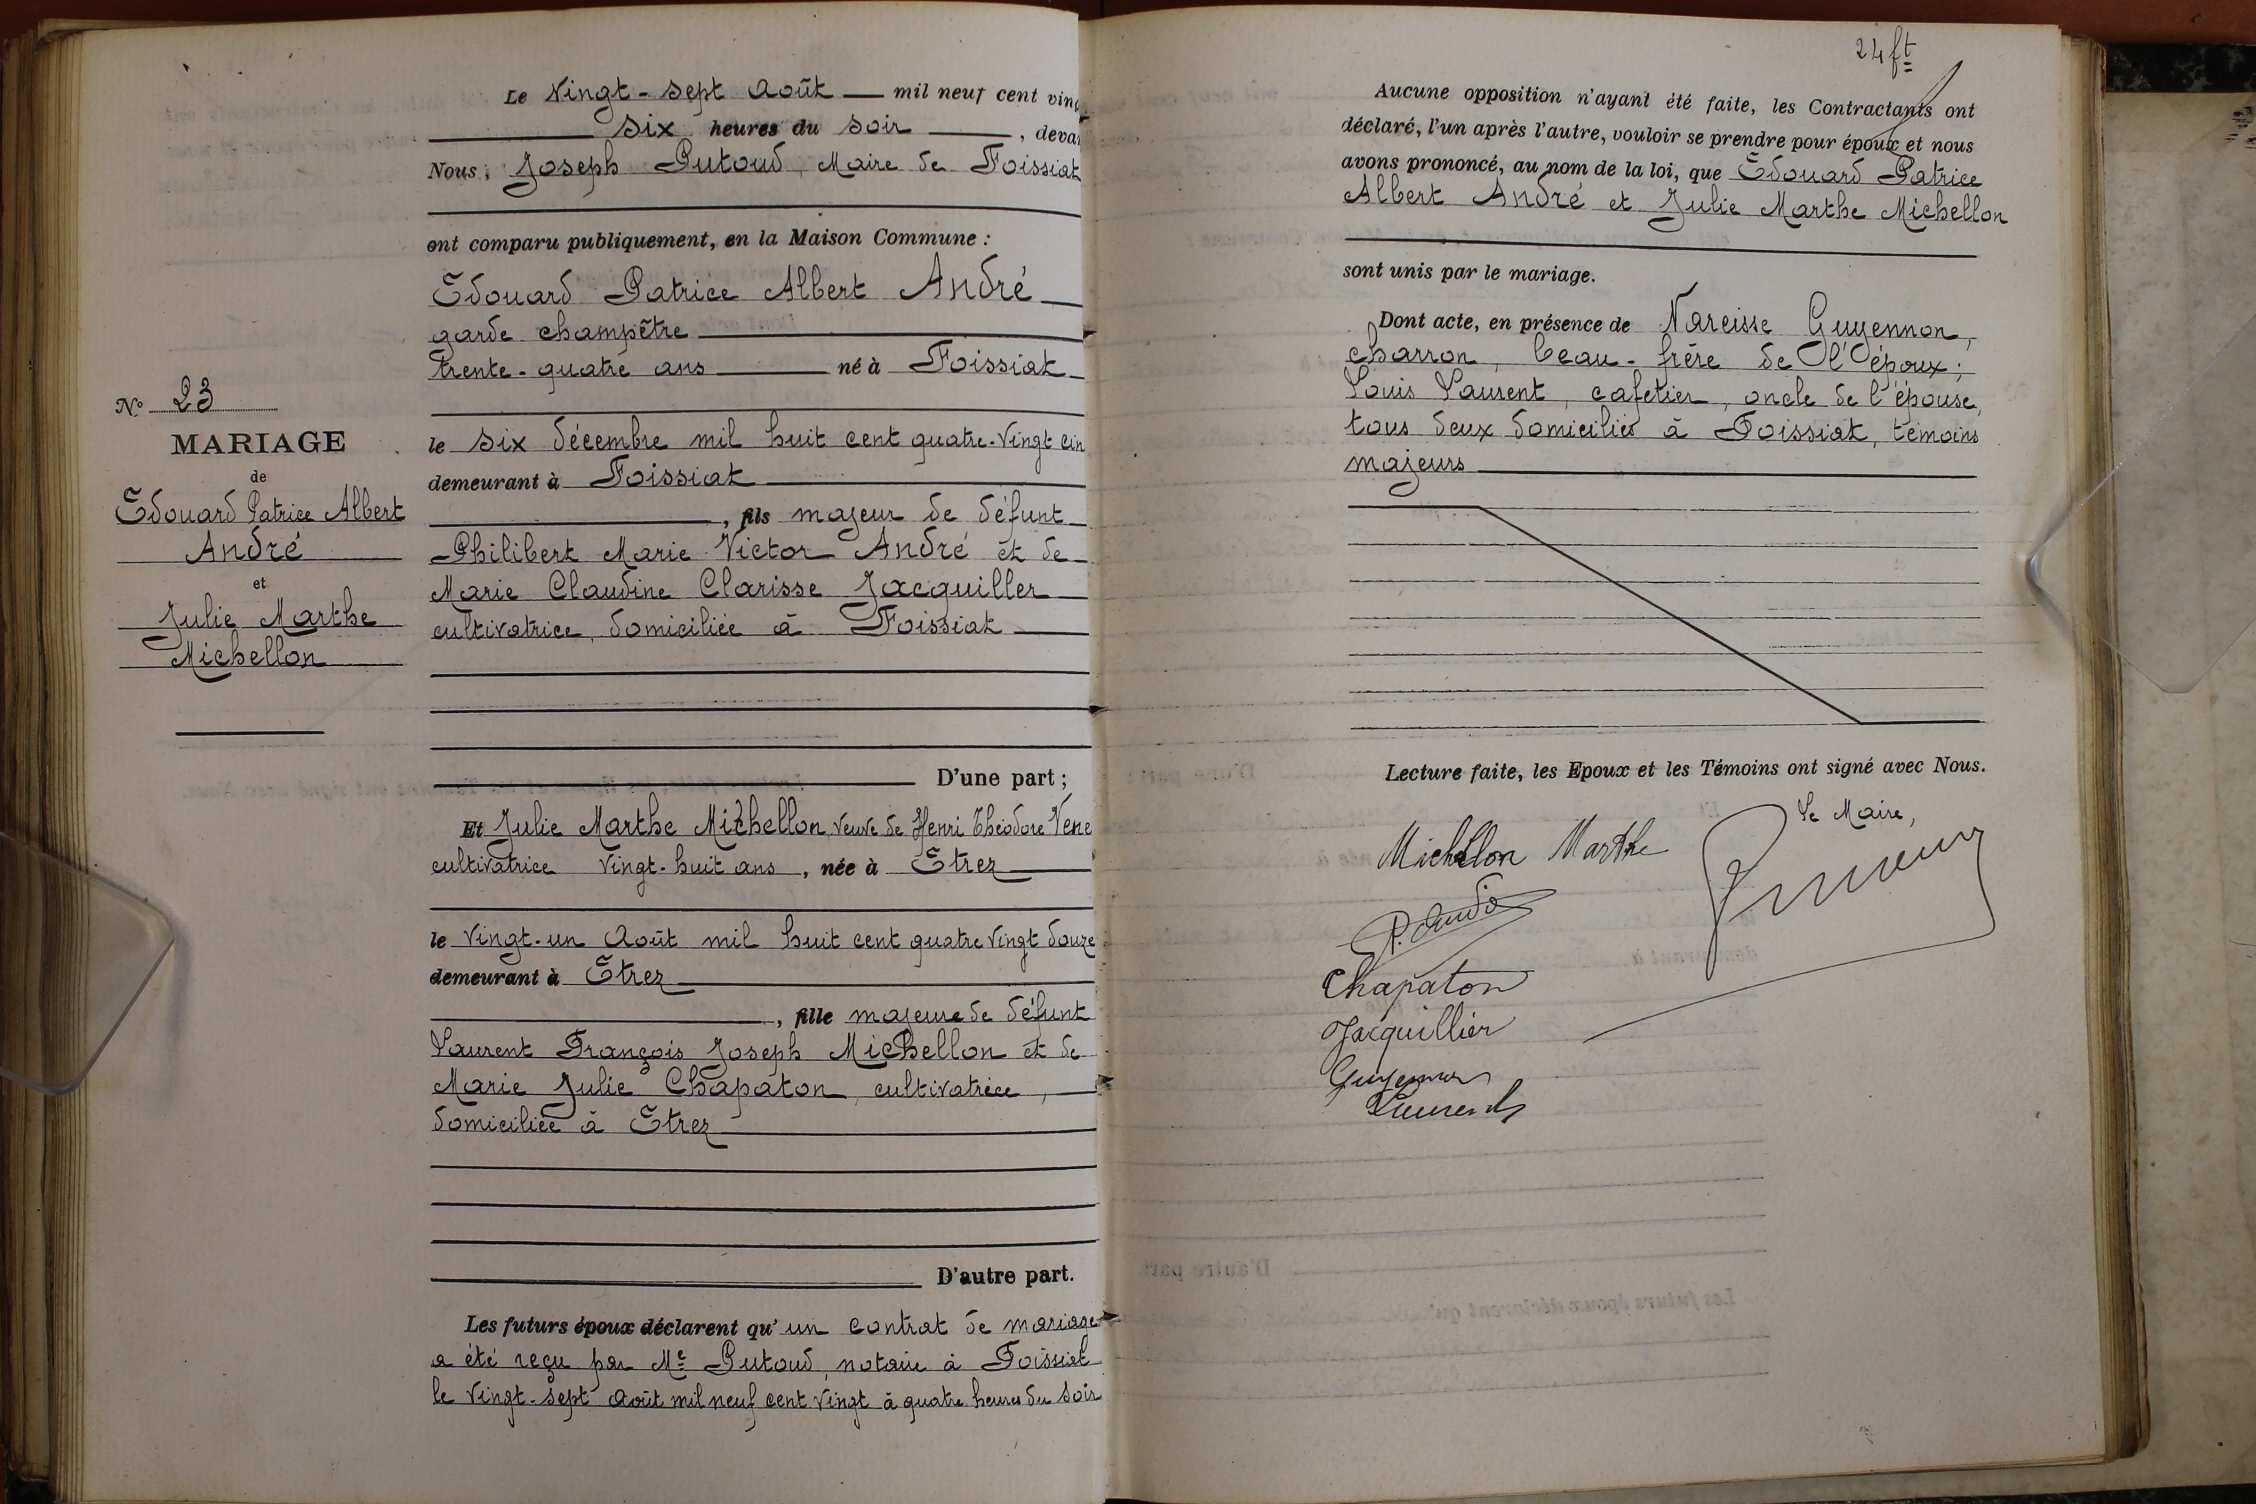 Le Vingt-sept Août mil neuf cent ving
six heures du soir , devan
Nous, Joseph Putoud, Maire de Foissiat
ont comparu publiquement, en la Maison Commune :
Edouard Patrice Albert André
garde champêtre
trente-quatre ans né à Foissiat
le six décembre mil huit cent quatre-vingt cin
demeurant à Foissiat
, fils majeur de défunt
Philibert Marie Victor André et de
Marie Claudine Clarisse Jacquiller
cultivatrice, domiciliée à Foissiat
D'une part ;
Et Julie Marthe Michellon, veuve de Henri Théodore Vene
cultivatrice vingt-huit ans , née à Etrez
le vingt-un Août mil huit cent quatre vingt douze
demeurant à Etrez
, fille majeure de défunt
Laurent François Joseph Michellon et de
Marie Julie Chapaton, cultivatrice,
domiciliée à Etrez
D'autre part.
Les futurs époux déclarent qu'un contrat de mariage
a été reçu par Me Putoud, notaire à Foissiat
le vingt-sept Août mil neuf cent vingt à quatre heures du soir
N° 23
MARIAGE
de
Edouard Patrice Albert
André
et
Julie Marthe
Michellon
24 ft
Aucune opposition n'ayant été faite, les Contractants ont
déclaré, l'un après l'autre, vouloir se prendre pour époux et nous
avons prononcé, au nom de la loi, que Edouard Patrice
Albert André et Julie Marthe Michellon
sont unis par le mariage.
Dont acte, en présence de Narcisse Guyennon,
charron, beau-frère de l'époux ;
Louis Laurent, cafetier, oncle de l'épouse,
tous deux domiciliés à Foissiat, témoins
majeurs
Lecture faite, les Epoux et les Témoins ont signé avec Nous.
Le Maire,
Michellon Marthe
Chapaton
Jacquillier
Guyennon
Laurent